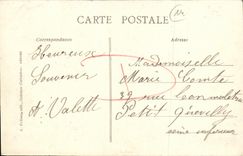 CARTE POSTALE
Correspondance
Adresse
Heureux
Souvenir
A. Valett
Mademoiselle
Marie Comte
39 rue Léon
Petit Quevilly
Seine inférieure